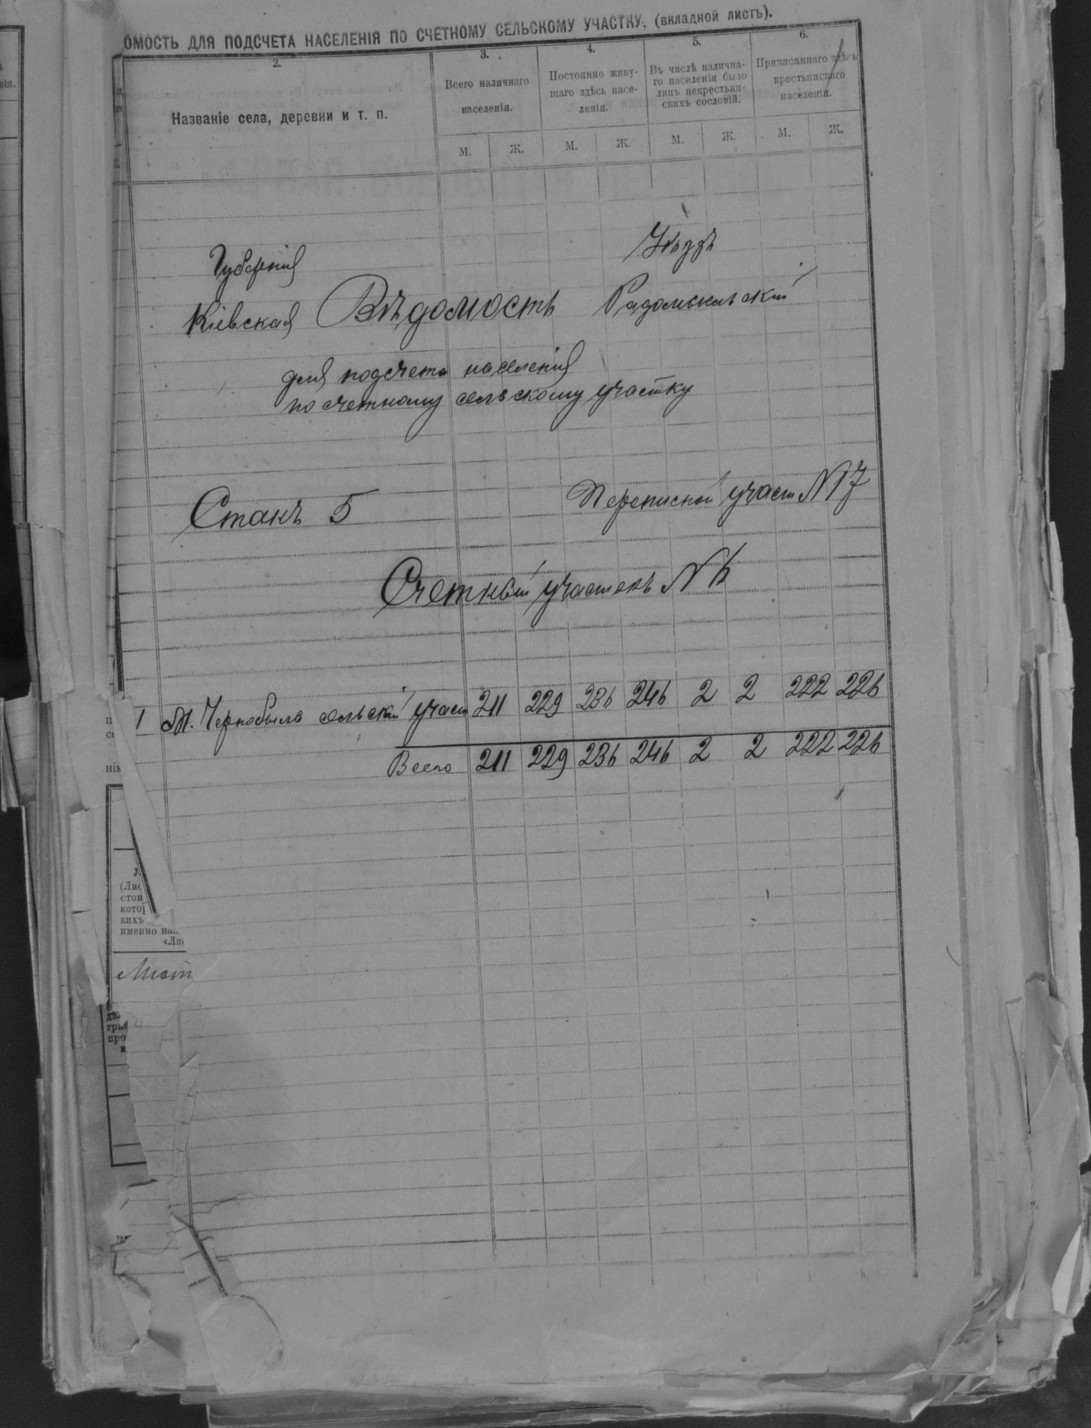 ОМОСТЬ ДЛЯ ПОДСЧЕТА НАСЕЛЕНІЯ ПО СЧЕТНОМУ СЕЛЬСКОМУ УЧАСТКУ. (вкладной листъ).
2. 3. 4. 5. 6.
Названіе села, деревни и т. п.
Всего наличнаго
населенія.
Постоянно живу-
щаго здѣсь насе-
ленія.
Въ числѣ налична-
го населенія было
лицъ некрестьян-
скихъ сословій.
Приписаннаго здѣсь
крестьянскаго
населенія.
М. Ж. М. Ж. М. Ж. М. Ж.
Губернія Уѣздъ
Кіевская Вѣдомость Радомысльскій
для подсчета населенія
по счетному сельскому участку
Станъ 5 Переписной участ N 17
Счетный участокъ N 6
1 М. Чернобыль сельскій участ 211 229 236 246 2 2 222 226
Всего 211 229 236 246 2 2 222 226
(Ли
стов
котор
кихъ
именно
«Ли
Лист